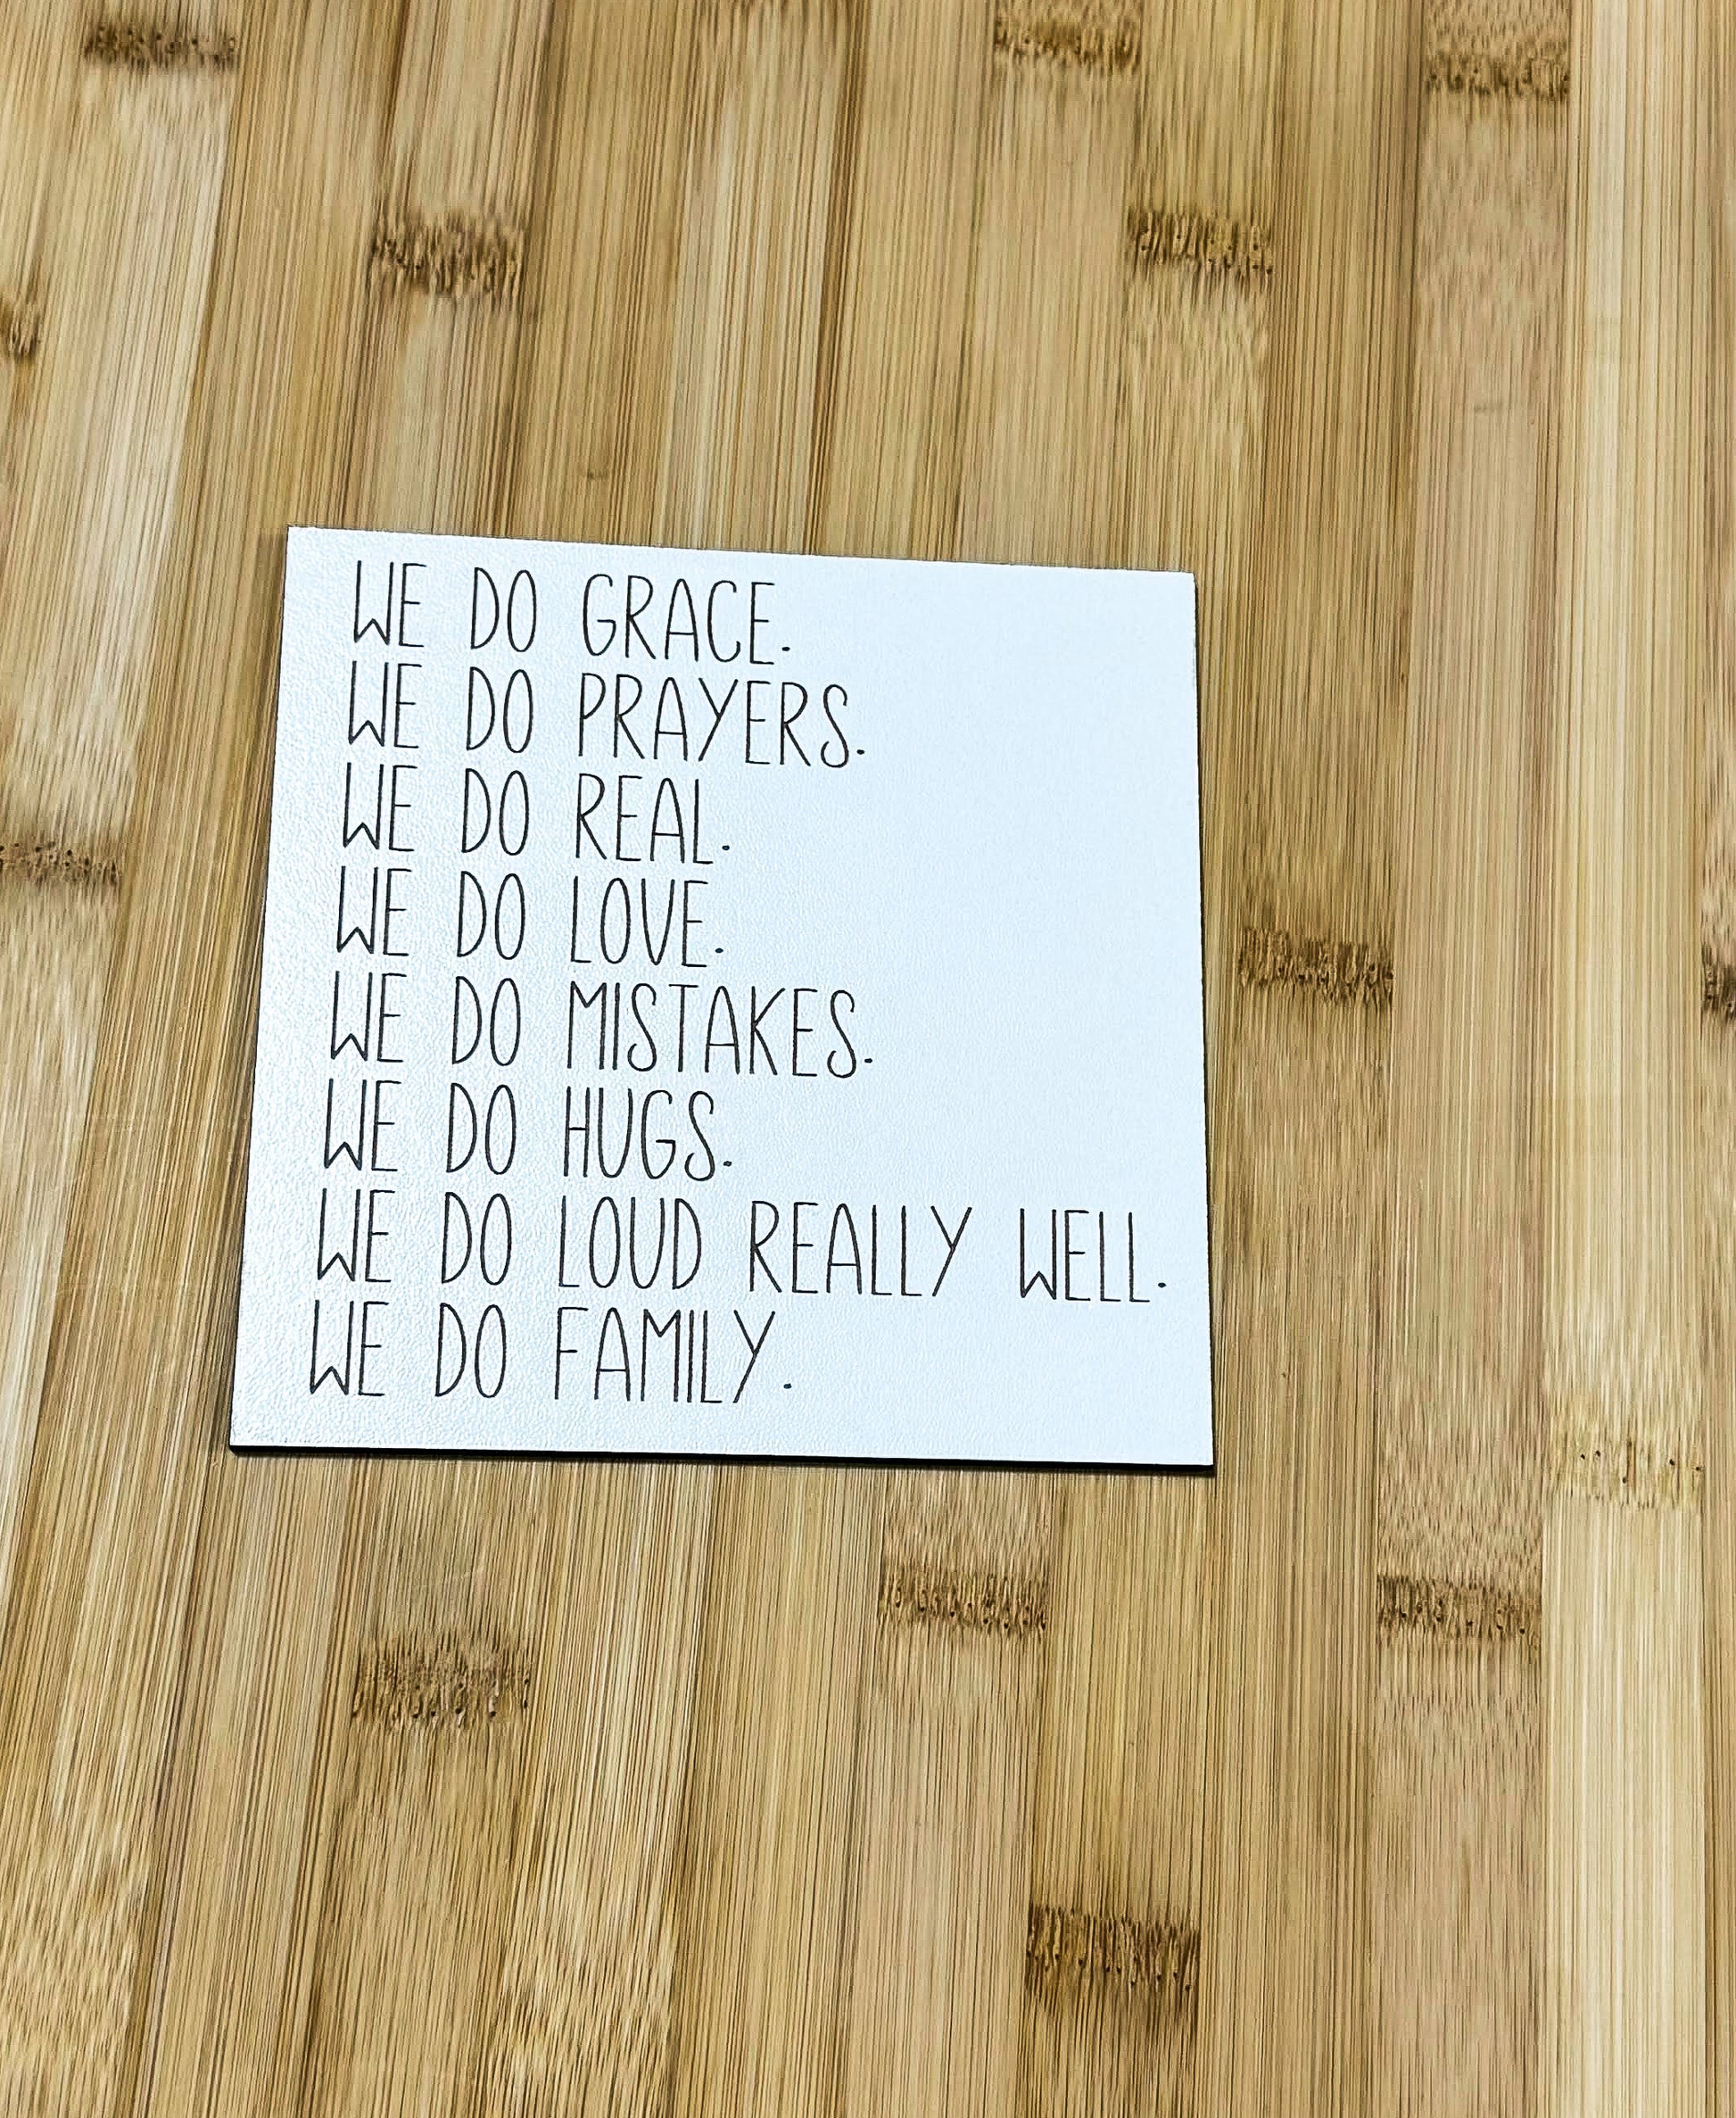 WE DO GRACE.
WE DO PRAYERS.
WE DO REAL.
WE DO LOVE.
WE DO MISTAKES.
WE DO HUGS.
WE DO LOUD REALLY WELL.
WE DO FAMILY.